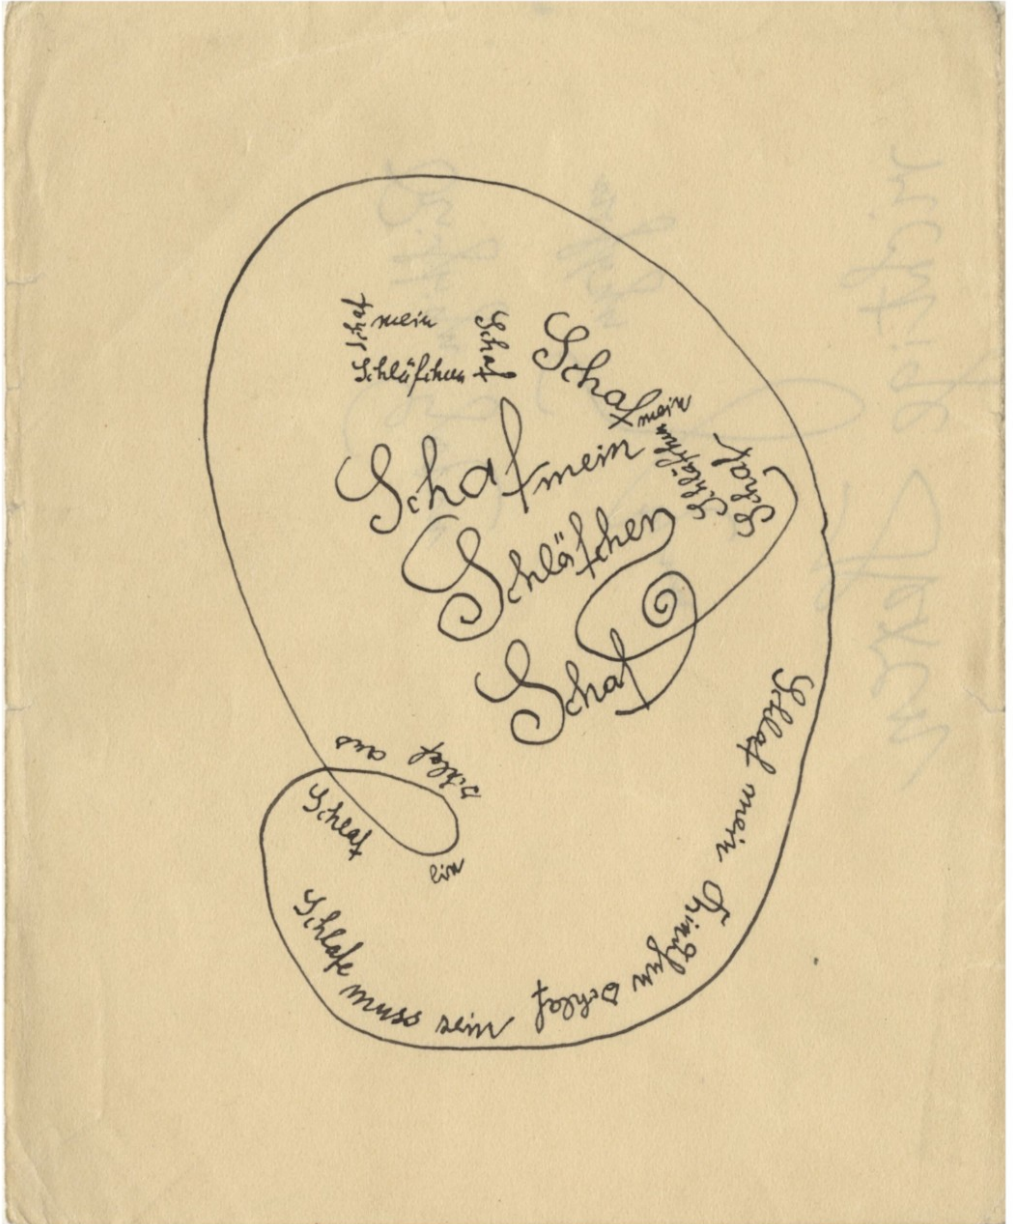 Schaf mein
Schläfchen
Schaf
Schaf mein
Schläfchen
Schaf
Schaf mein
Schläfchen
Schaf
Schlaf mein Kindchen schlaf
Schlafe muss sein
Schlaf
ein
schlaf
aus